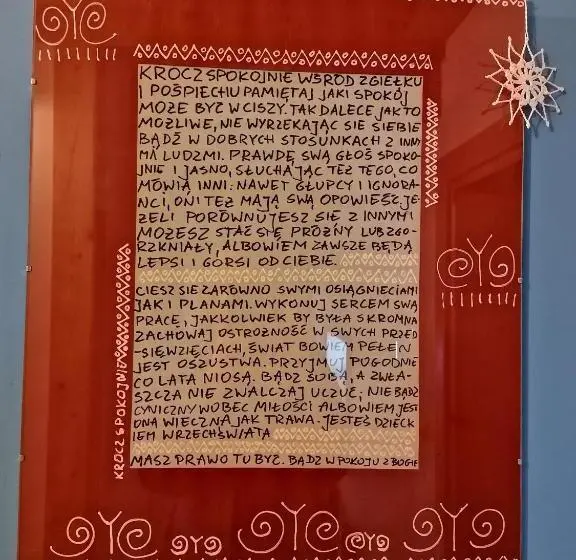 KROCZ SPOKOJNIE WŚRÓD ZGIEŁKU
I POŚPIECHU PAMIĘTAJ JAKI SPOKÓJ
MOŻE BYĆ W CISZY. TAK DALECE JAK TO
MOŻLIWE, NIE WYRZEKAJĄC SIĘ SIEBIE
BĄDŹ W DOBRYCH STOSUNKACH Z INNY
MI LUDŹMI. PRAWDĘ SWĄ GŁOŚ SPOKO-
JNIE I JASNO, SŁUCHAJĄC TEŻ TEGO, CO
MÓWIĄ INNI: NAWET GŁUPCY I IGNORA-
NCI, ONI TEŻ MAJĄ SWĄ OPOWIEŚĆ. JE-
ŻELI PORÓWNUJESZ SIĘ Z INNYMI
MOŻESZ STAĆ SIĘ PRÓŻNY LUB ZGO-
RZKNIAŁY, ALBOWIEM ZAWSZE BĘDĄ
LEPSI I GORSI OD CIEBIE.
CIESZ SIĘ ZARÓWNO SWYMI OSIĄGNIĘCIAMI
JAK I PLANAMI. WYKONUJ SERCEM SWĄ
PRACĘ, JAKKOLWIEK BY BYŁA SKROMNA
ZACHOWAJ OSTROŻNOŚĆ W SWYCH PRZED
-SIĘWZIĘCIACH, ŚWIAT BOWIEM PEŁEN
JEST OSZUSTWA. PRZYJMUJ POGODNIE
CO LATA NIOSĄ. BĄDŹ SOBĄ, A ZWŁA-
SZCZA NIE ZWALCZAJ UCZUĆ; NIE BĄDŹ
CYNICZNY WOBEC MIŁOŚCI ALBOWIEM JEST
ONA WIECZNA JAK TRAWA. JESTEŚ DZIECK
IEM WRZECHŚWIATA
MASZ PRAWO TU BYĆ. BĄDŹ W POKOJU Z BOGIEM
KROCZ SPOKOJNIE